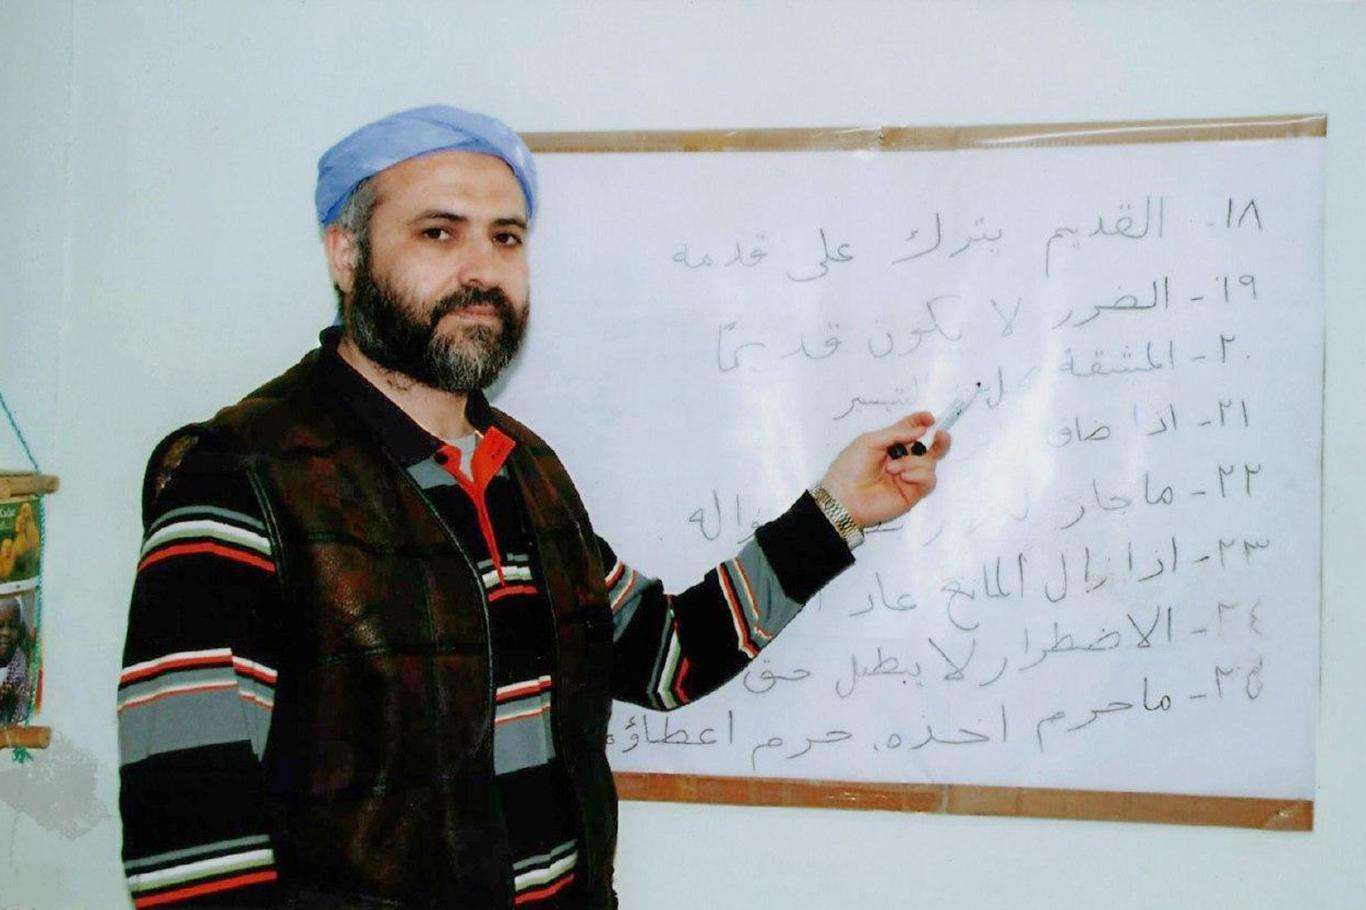 ١٨- القديم يترك على قدمه
١٩- الضرر لا يكون قديمًا
٢٠- المشقة التيسير
٢١- اذا ضاق
٢٢- ماجاز
٢٣- اذا زال المانع عاد
٢٤- الاضطرار لا يبطل حق
٢٥- ماحرم اخذه حرم اعطاؤه